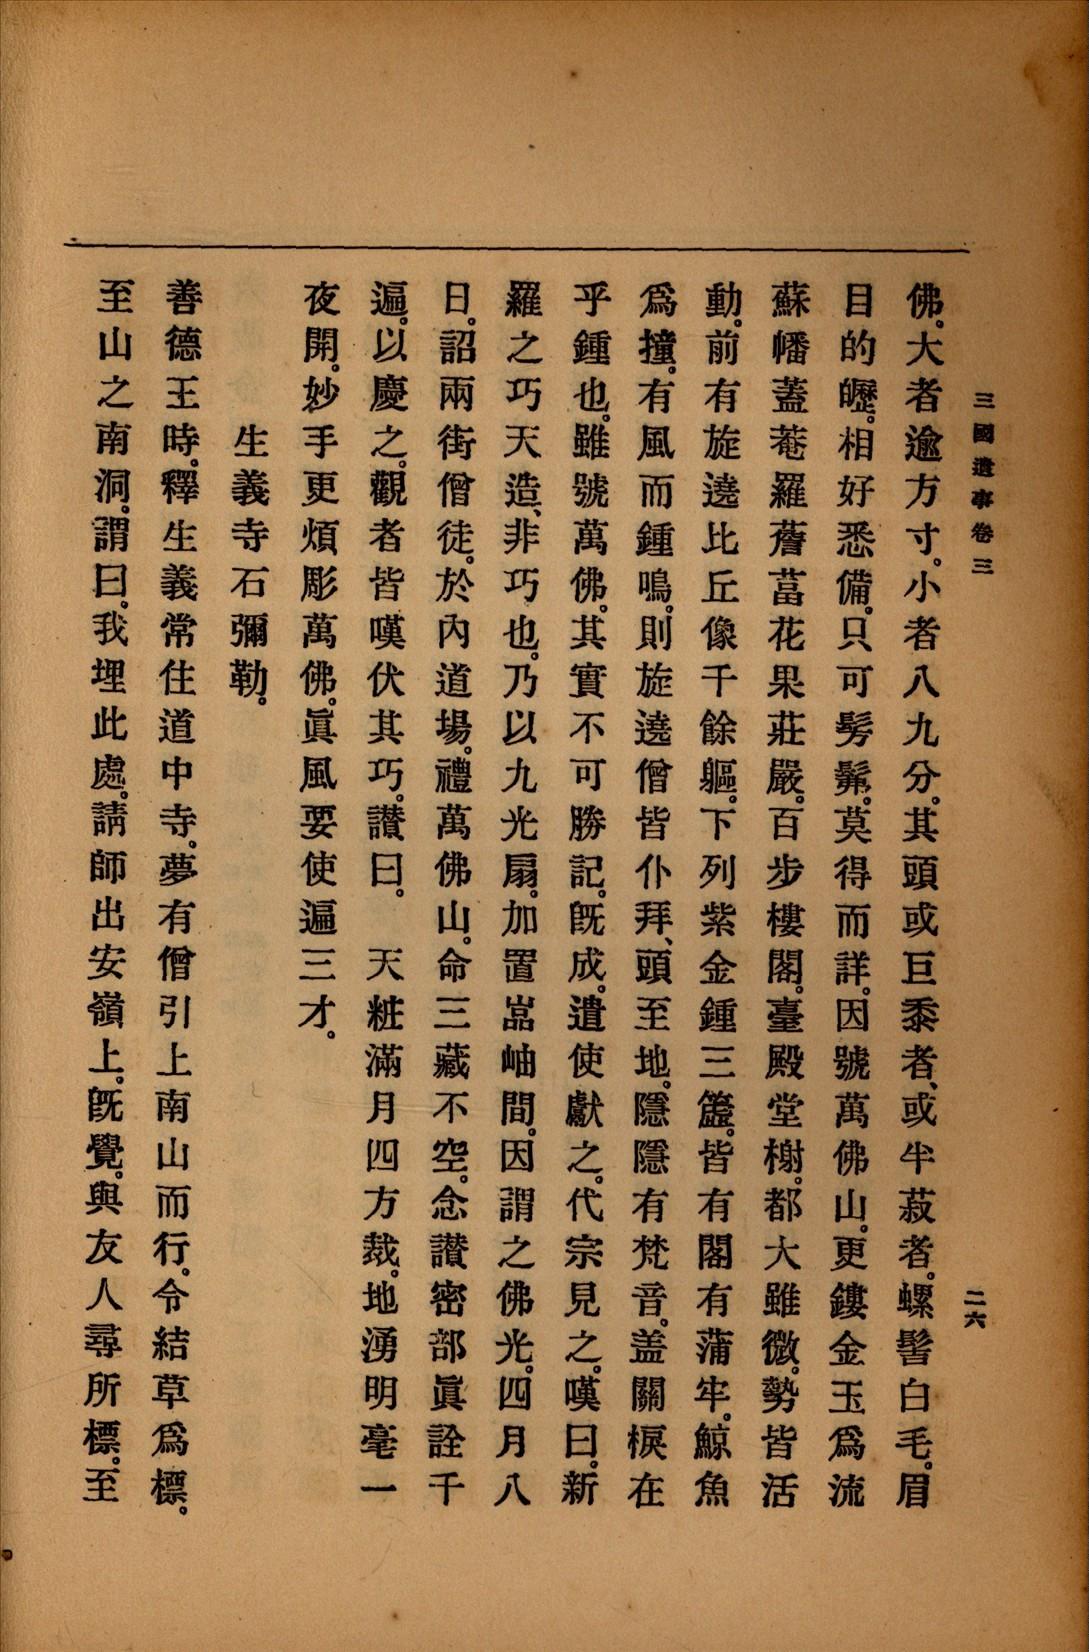 三國遺事卷三
二六
佛。大者逾方寸。小者八九分。其頭或巨黍者、或半菽者。螺髻白毛。眉
目的皪。相好悉備。只可髣髴。莫得而詳。因號萬佛山。更鏤金玉爲流
蘇幡蓋菴羅薝葍花果莊嚴。百步樓閣。臺殿堂榭。都大雖微。勢皆活
動。前有旋遶比丘像千餘軀。下列紫金鍾三簴。皆有閣有蒲牢。鯨魚
爲撞。有風而鍾鳴。則旋遶僧皆仆拜、頭至地。隱隱有梵音。盖關棙在
乎鍾也。雖號萬佛。其實不可勝記。旣成。遣使獻之。代宗見之。嘆曰。新
羅之巧天造、非巧也。乃以九光扇。加置嵓岫間。因謂之佛光。四月八
日。詔兩街僧徒。於內道場。禮萬佛山。命三藏不空。念讃密部眞詮千
遍。以慶之。觀者皆嘆伏其巧。讃曰。　天粧滿月四方裁。地湧明毫一
夜開。妙手更煩彫萬佛。眞風要使遍三才。
生義寺石彌勒。
善德王時。釋生義常住道中寺。夢有僧引上南山而行。令結草爲標。
至山之南洞。謂曰。我埋此處。請師出安嶺上。旣覺。與友人尋所標。至